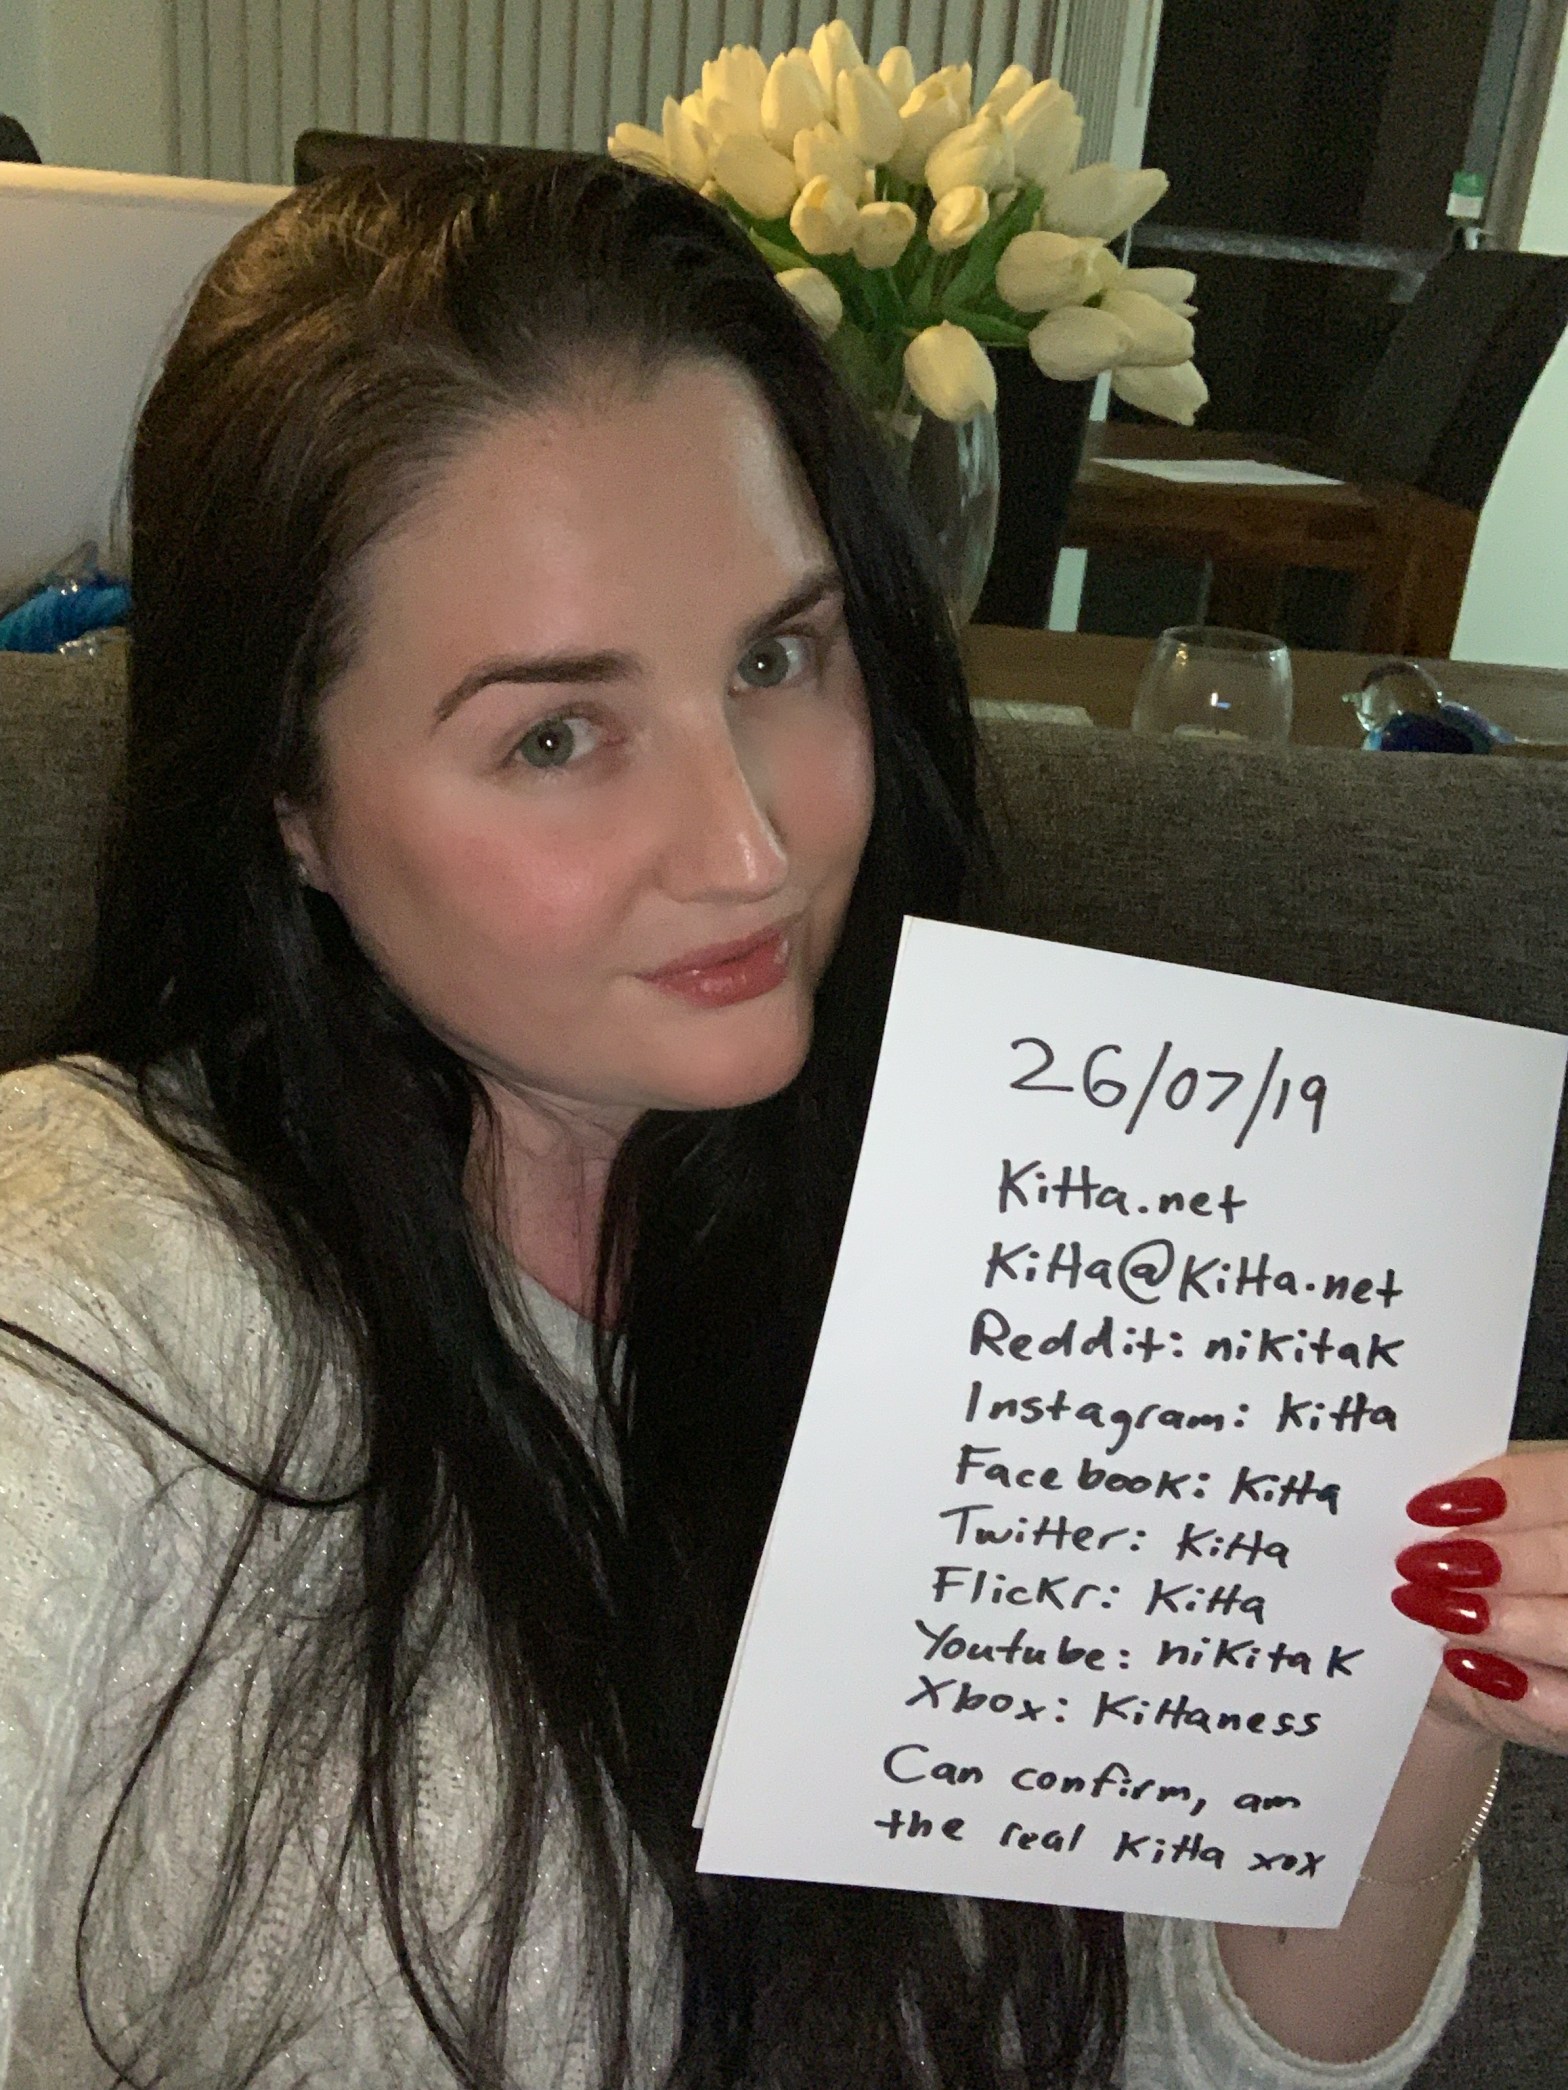 26/07/19
Kitta.net
Kitta@Kitta.net
Reddit: nikitak
Instagram: Kitta
Facebook: Kitta
Twitter: Kitta
Flickr: Kitta
Youtube: nikitak
Xbox: Kittaness
Can confirm, am
the real Kitta xox